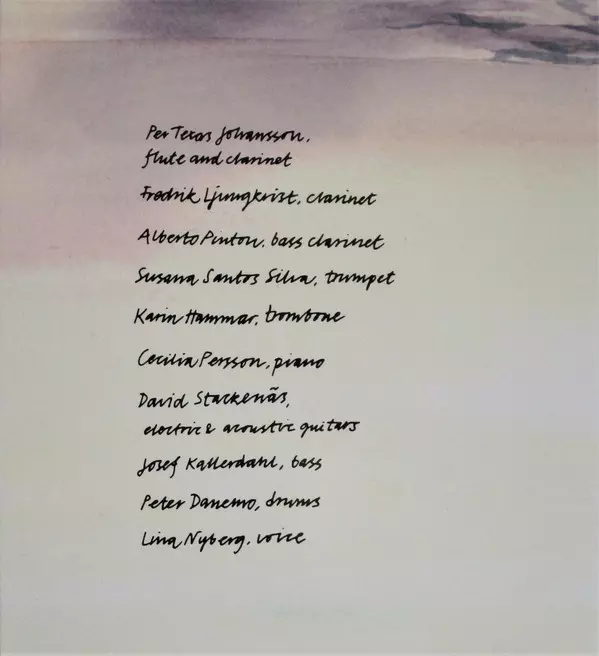 Per Texas Johansson,
flute and clarinet
Fredrik Ljungkvist, clarinet
Alberto Pinton, bass clarinet
Susana Santos Silva, trumpet
Karin Hammar, trombone
Cecilia Persson, piano
David Stackenäs,
electric & acoustic guitars
Josef Kallerdahl, bass
Peter Danemo, drums
Lina Nyberg, voice